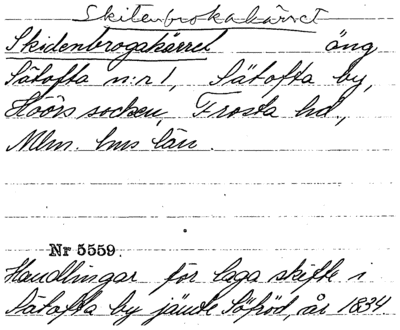 Skitenbrokakärret
Skidenbrogakärret äng
Sätofta n:r 1, Sätofta by,
Höörs socken, Frosta hd,
Mlm. hus län.
Nr 5559.
Handlingar för laga skifte i
Sätofta by jämte Böfröd, år 1834